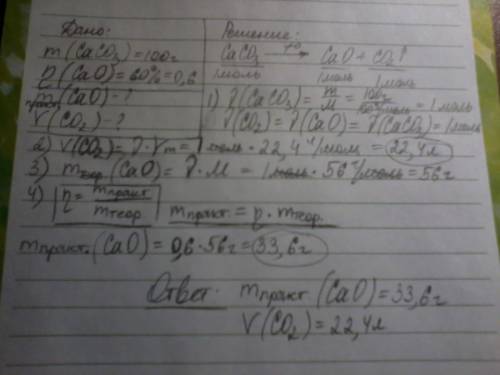 Дано:
m(CaCO₃)=100г
η(CaO)=60%=0,6
mпракт(CaO)-?
V(CO₂)-?
Решение:
CaCO₃ —t°→ CaO + CO₂↑
1моль 1моль 1моль
1) ν(CaCO₃)= m/M = 100г/100г/моль = 1моль
ν(CO₂)=ν(CaO)=ν(CaCO₃)=1моль
2) V(CO₂)=ν·Vm=1моль·22,4л/моль=22,4л
3) mтеор.(CaO)=ν·M=1моль·56г/моль=56г
4) η= mпракт/mтеор mпракт.=η·mтеор.
mпракт.(CaO)=0,6·56г=33,6г
Ответ: mпракт(CaO)=33,6г
V(CO₂)=22,4л